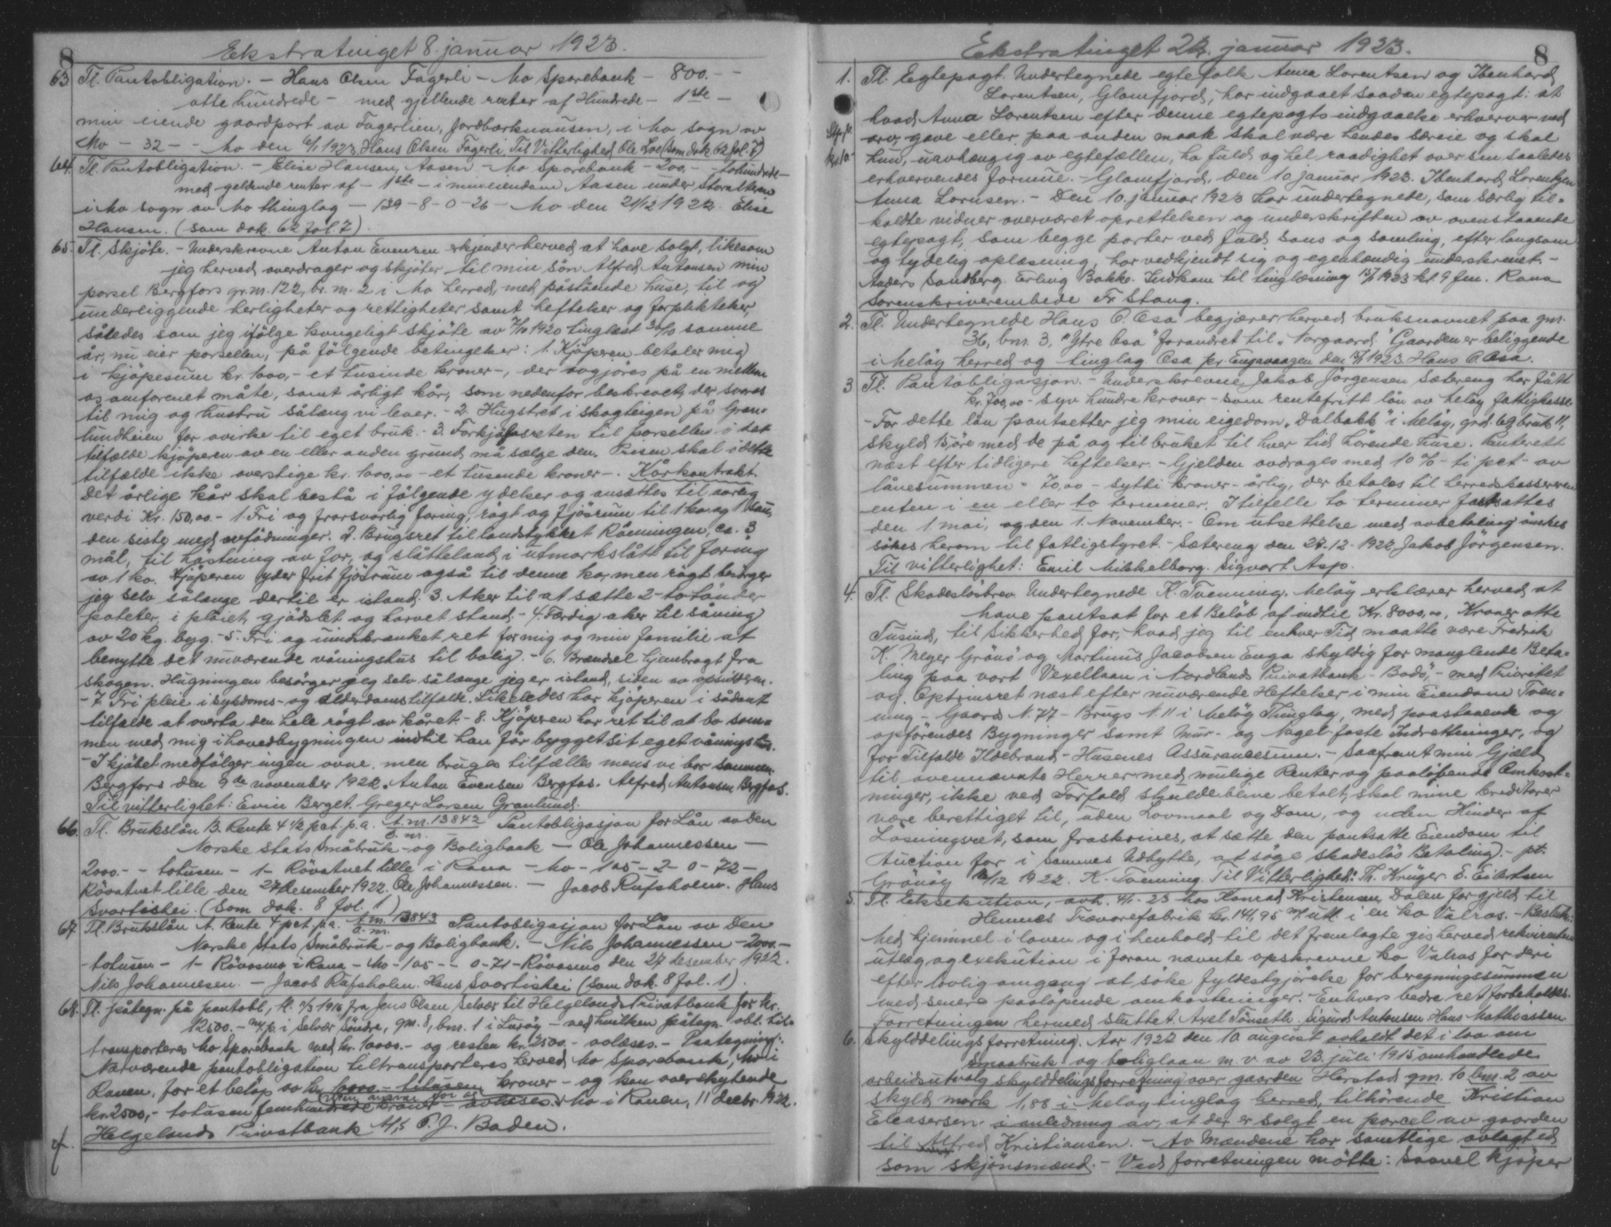 8
Ekstratinget 8. januar 1923.
63. Tl. Pantobligation. - Hans Olsen Fagerli - Mo Sparebank - 800.-
otte hundrede - med gjeldende renter af Hundrede - 1ste -
min eiende gaardpart av Fagerlien, Jordbærhaugen, i Mo sogn av
Mo - 32 - - Mo den 6/1 1923 Hans Olsen Fagerli. Til Vitterlighed (som dok 62 fol. 7)
64. Tl. Pantobligation. - Elise Hansen, Aasen - Mo Sparebank - 200.- tohundrede -
med gjeldende renter af - 1ste - i min eiendom Aasen under Storalteren
i Mo sogn av Mo thinglag - 139-8-0-26 - Mo den 21/12 1922. Elise
Hansen. (som dok. 62 fol. 7).
65. Tl. Skjøte. - Underskrevne Anton Evensen erkjender herved at have solgt, likesom
jeg herved overdrager og skjøter til min søn Alfred Antonsen min
parsel Bergfors gr.nr. 122, br.nr. 2 i Mo herred, med påstående huse, til og
underliggende herligheter og rettigheter samt heftelser og forpliktelser,
således som jeg ifølge kongeligt skjøte av 7/10 1920 tinglæst samme
år, nu eier parsellen, på følgende betingelser: 1. Kjøperen betaler mig
i kjøpesum kr. 1000,- et tusinde kroner -, der avgjøres på en mellem
os omforenet måte, samt årligt kår, som nedenfor beskrevet, der svares
til mig og hustru sålæng vi lever. - 2. Hugstret i skogteigen på Grøn-
lundheien for avirke til eget bruk. 3. Forkjøpsretten til parsellen i det
tilfælde kjøperen av en eller anden grund må sælge den. Prisen skal i dette
tilfælde ikke overstige kr. 1000,00 - et tusende kroner -. Kårkontrakt.
Det årlige kår skal bestå i følgende ydelser og ansættes til aarlig
verdi kr. 150,00. - 1. Fri og forsvarlig foring, røgt og fjøsrum til 1 ko og 1 sau,
den siste med avfødninger. 2. Brugsret til landstykket Råningen, ca. 3
mål, til høstning av for, og slåtteland i utmarkslått til foring
av 1 ko. Kjøperen yder frit fjøsrum også til denne ko, men røgt besørger
jeg selv sålænge dertil er istand. 3. Aker til at sætte 2 - to tønder
poteter, i pløiet, gjødslet og harvet stand. - 4. Færdig aker til såning
av 20 kg. byg. - 5. Fri og uindskrænket ret for mig og min familie at
benytte det nuværende våningshus til bolig. - 6. Brændsel hjembragt fra
skogen. Hugningen besørger jeg selv sålænge jeg er istand, siden av opsitteren.
- 7. Fri pleie i sygdoms- og alderdomstilfælde. Likeledes har kjøperen i sådant
tilfælde at overta den hele røgt av kåret. - 8. Kjøperen har ret til at bo sam-
men med mig i hovedbygningen indtil han får bygget sit eget våningshus.
- I kjøbet medfølger ingen ovne, men bruges tilfælles mens vi bor sammen.
Bergfors den 9de november 1922. Anton Evensen Bergfors. Alfred Antonsen Bergfors.
Til vitterlighet: Evin Berget. Greger Larsen Grønlund.
66. Tl. Brukslån B. Rente 4½ pct p.a. A.nr. 13842 Pantobligasjon for Lån av den
Norske Stats Småbruk- og Boligbank - Ole Johannessen -
2000.- - totusen - 1 - Røvatnet lille i Rana - Mo - 105-2-0-72 -
Røvatnet lille den 27 desember 1922. Ole Johannessen. - Jacob Rufsholm. Hans
Svartishei. (Som dok. 8 fol. 1)
67. Tl. Brukslån A. Rente 4 pct p.a. A.nr. 13843 Pantobligasjon for Lån av Den
Norske Stats Småbruk- og Boligbank. - Nils Johannessen - 2000.-
- totusen - 1 - Røvasnes i Rana - Mo - 105 - - 0-71 - Røvasnes den 27 desember 1922.
Nils Johannesen. - Jacob Rufsholm. Hans Svartishei (som dok. 8 fol. 1).
68. Tl. påtegn. på pantobl. tl. 1916 fra Jens Olsen Selvær til Helgelands Privatbank for kr.
12500.- p. i Selvær Søndre, gnr. 1, bnr. 1 i Lurøy - ved hvilken påtegn. obl. til-
transporteres Mo Sparebank ved kr. 10000.- og resten kr. 2500.- avlæses. - Paategning:
Nærværende pantobligation tiltransporteres herved Mo Sparebank, Mo i
Ranen, for et beløp av kr. 10000.- titusen kroner - og kan overskytende
kr. 2500,- totusen femhundrede kroner - avlæses. Mo i Ranen, 11 decbr. 1922.
Helgelands Privatbank A/S P. J. Baden.
8
Ekstratinget 24. januar 1923.
1. Tl. Egtepagt. Undertegnede egtefolk Anna Lorentsen og Ibenhard
Lorentsen, Glomfjord, har indgaaet saadan egtepagt: at
hvad Anna Lorentsen efter denne egtepagts indgaaelse erhverver ved
arv, gave eller paa anden maate skal være hendes særeie og skal
hun, uavhængig av egtefællen, ha fuld og hel raadighet over sin saaledes
erhvervendes formue. - Glomfjord, den 10 januar 1923. Ibenhard Lorentzen
Anna Lorensen. - Den 10. januar 1923 har undertegnede, som særlig til-
kaldte vidner overværet oprettelsen og underskriften av ovenstaaende
egtepagt, som begge parter ved fuld sans og samling, efter langsom
og tydelig oplæsning, har vedkjendt sig og egenhændig underskrevet. -
Anders Sandberg. Erling Bakke. Indkom til tinglæsning 15/1 1923 kl 9 fm. Rana
sorenskriverembede Fr Stang.
2. Tl. Undertegnede Hans O. Esa begjærer herved bruksnavnet paa gnr.
36, bnr. 3. "Ytre Esa" forandret til "Norgaard". Gaarden er beliggende
i Meløy herred og tinglag. Esa pr. Engavaagen den 1923. Hans O Esa.
3. Tl. Pantobligasjon. - Underskrevne Jakob Jørgensen Sætereng har fått
kr. 700,00 - syv hundre kroner - som rentefritt lån av Meløy fattigkasse.
- For dette lån pantsetter jeg min eiendom "Dalbakk" i Meløy, grd. 69 bruk 11,
skyld 35 øre med de på og til bruket til hver tid hørende huse. Panterett
næst efter tidligere heftelser. - Gjelden avdrages med 10 % - ti pct - av
lånesummen - 70,00 - sytti kroner - årlig, der betales til herredskassereren
enten i en eller to terminer. I tilfelle to terminer fastsættes
den 1 mai, og den 1. November. - Om utsettelse med avbetaling ønskes
søkes herom til fattigstyret. - Sætereng den 27.12.1922 Jakob Jørgensen.
Til vitterlighet: Emil Mikkelborg. Sigvart Asp.
4. Tl. Skadesløsbrev Undertegnede K. Tvenning. Meløy erklærer herved at
have pantsat for et Beløb af indtil Kr. 8000,00, Kroner otte
Tusind, til sikkerhed for, hvad jeg til enhver Tid maatte være Fredrik
K. Meyer Grønø og Martinus Jacobsen Enga skyldig for manglende Beta-
ling paa vort Vexellaan i Nordlands Privatbank - Bodø, - med Prioritet
og Optrinsret næst efter nuværende Heftelser i min Eiendom Tven-
ning - Gaards N. 77 - Brugs N. 11 i Meløy Thinglag, med paastaaende og
opførendes Bygninger samt Mur- og Nagel faste Indretninger, og
for Tilfælde Ildebrand - Husenes Assurancesum. - Saafremt min Gjæld
til ovennævnte Herrer med mulige Renter og paaløbende Omkost-
ninger, ikke ved Forfald skulde blive betalt, skal mine Creditorer
være berettiget til, uden Lovmaal og Dom, og uden Hinder af
Løsningsret, som fraskrives, at sætte den pantsatte Eiendom til
Auction for i sammes Udbytte, at søge skadesløs Betaling. - pt.
Grønøy 12 1922. K. Tvenning Til Vitterlighed: Th. Krüger E. Eilertsen
5. Tl. Eksekution, avh. 4/1.23 hos Konrad Kristensen Dalen for gjeld til
Hemnes Trævarefabrik kr. 141,95 utl. i en ko Valros. - Beslut:
Med hjemmel i loven og i henhold til det fremlagte gis herved rekvirenten
utlæg og exekution i foran nævnte opskrevne ko Valros for deri
efter lovlig omgang at søke fyldestgjørelse for beregningssummen
med senere paaløpende omkostninger. - Enhvers bedre ret forbeholdes.
Forretningen hermed sluttet. Axel Tønseth. Sigurd Antonsen Hans Mathiassen
6. Skylddelingsforretning. Aar 1922 den 10 august avholdt det i lov om
Smaabruk og boliglaan m.v. av 23 juli 1915 omhandlede
arbeidsutvalg skylddelingsforretning over gaarden Herstad gnr. 10 bnr. 2 av
skyld mark 1,88 i Meløy tinglag herred, tilhørende Kristian
Eleasersen i anledning av, at der er solgt en parcel av gaarden
til Alfred Kristiansen. - Av Mændene har samtlige avlagt ed
som skjønsmænd. - Ved forretningen møtte: saavel kjøper